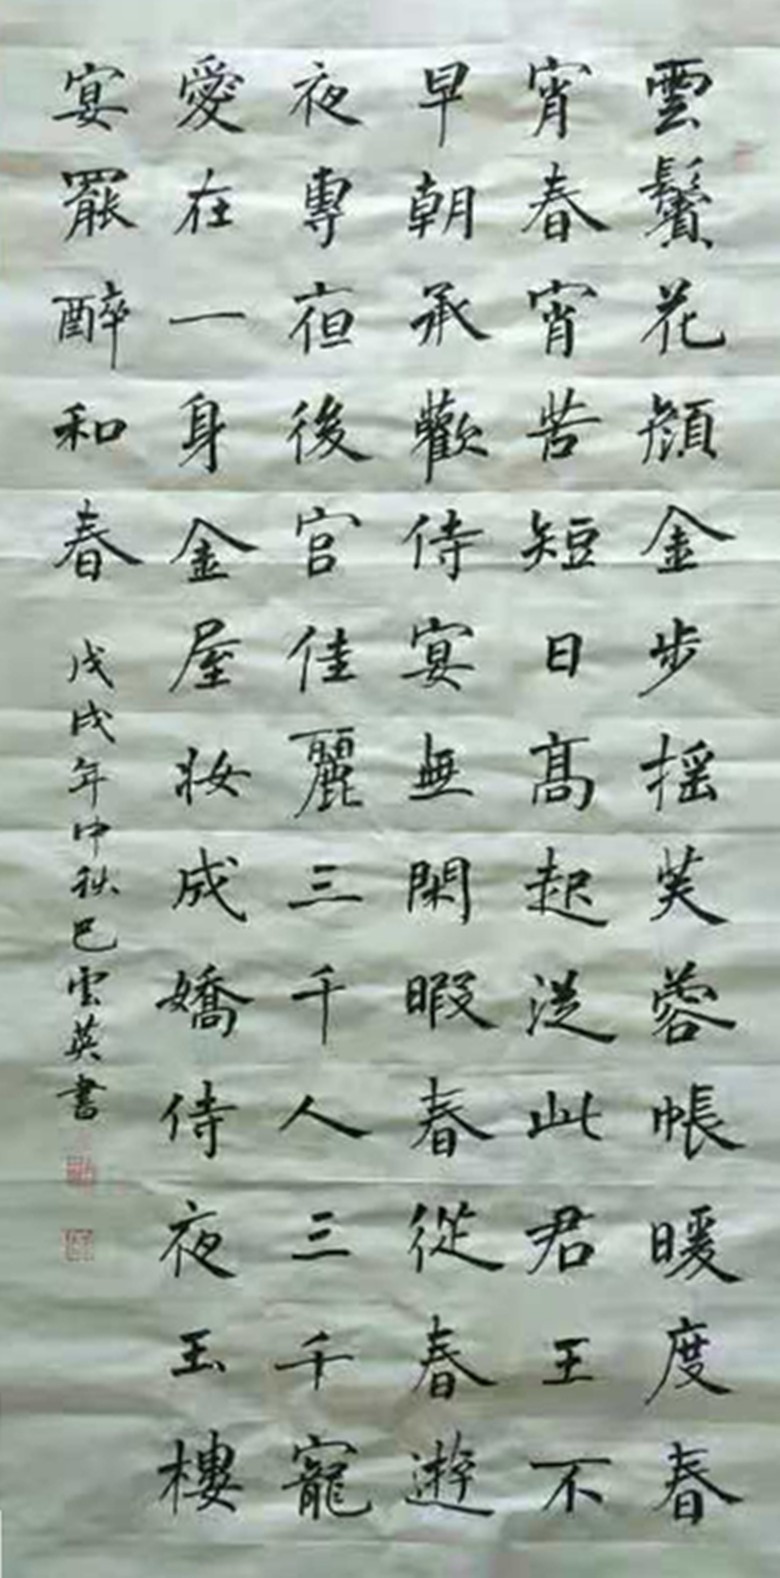 雲鬢花顔金步搖芙蓉帳暖度春
宵春宵苦短日高起從此君王不
早朝承歡侍宴無閑暇春從春遊
夜專夜後宮佳麗三千人三千寵
愛在一身金屋妝成嬌侍夜玉樓
宴罷醉和春
戊戌年中秋巴雲英書